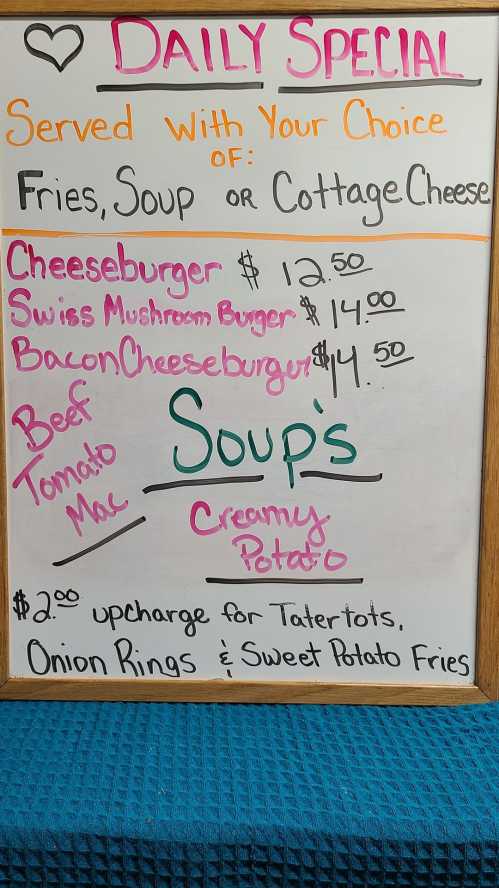 Daily Special
Served With Your Choice
OF:
Fries, Soup OR Cottage Cheese
Cheeseburger $ 12.50
Swiss Mushroom Burger $ 14.00
Bacon Cheeseburger $14.50
Soup's
Beef
Tomato
Mac
Creamy
Potato
$2.00 upcharge for Tater tots,
Onion Rings & Sweet Potato Fries